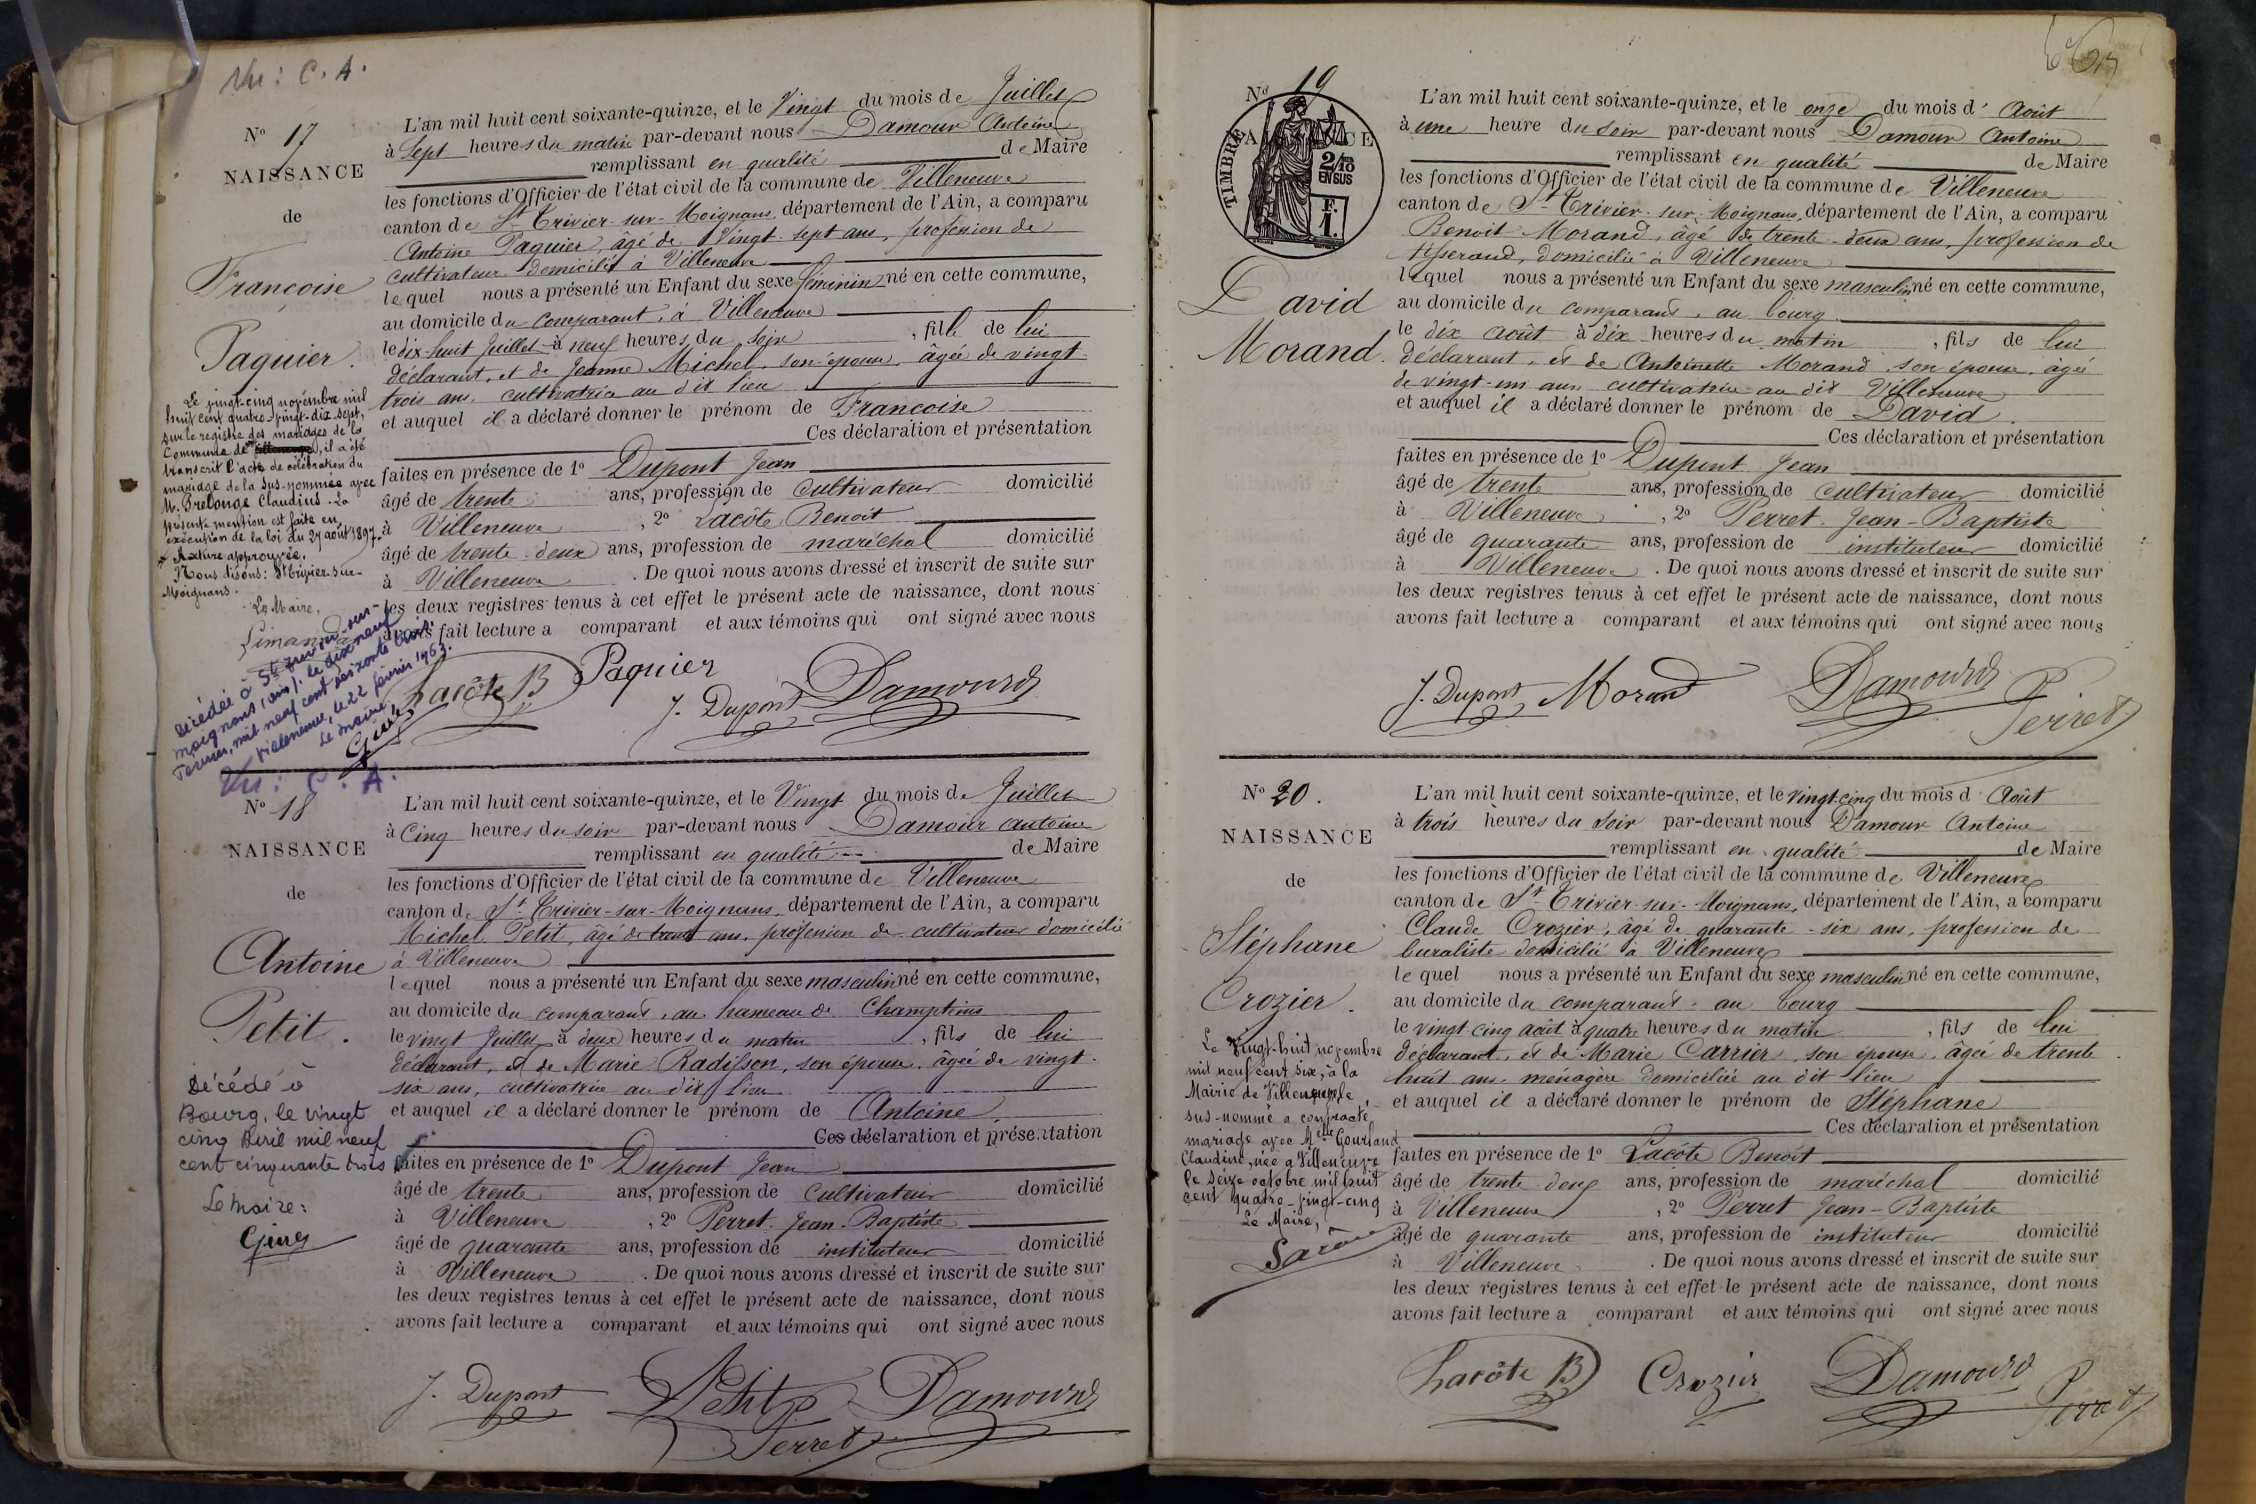 Vu : C. A.
N° 17
NAISSANCE
de
Françoise
Paquier.
Le vingt-cinq novembre mil
huit cent quatre-vingt-dix-sept,
sur le registre des mariages de la
commune de Villeneuve, il a été
transcrit l'acte de célébration du
mariage de la sus-nommée avec
M. Brelonge Claudius. La
présente mention est faite en
exécution de la loi du 27 août 1897.
Rature approuvée.
Nous disons : St Trivier-sur-
Moignans.
Le Maire,
Décédée à St Trivier-sur-
Moignans (Ain), le dix neuf
Février, mil neuf cent soixante trois.
Villeneuve, le 22 février 1963.
Le Maire
L'an mil huit cent soixante-quinze, et le Vingt du mois de Juillet
à Sept heures du matin par-devant nous Damour Antoine
remplissant en qualité de Maire
les fonctions d'Officier de l'état civil de la commune de Villeneuve
canton de St Trivier-sur-Moignans, département de l'Ain, a comparu
Antoine Paquier, âgé de Vingt-sept ans, profession de
cultivateur domicilié à Villeneuve
lequel nous a présenté un Enfant du sexe féminin né en cette commune,
au domicile du comparant, à Villeneuve
le dix-huit Juillet à neuf heures du soir, fille de lui
déclarant, et de Jeanne Michel, son épouse, âgée de vingt-
trois ans, cultivatrice au dit lieu
et auquel il a déclaré donner le prénom de Françoise
Ces déclaration et présentation
faites en présence de 1° Dupont Jean
âgé de trente ans, profession de cultivateur domicilié
à Villeneuve, 2° Lacôte Benoit
âgé de trente-deux ans, profession de maréchal domicilié
à Villeneuve. De quoi nous avons dressé et inscrit de suite sur
les deux registres tenus à cet effet le présent acte de naissance, dont nous
avons fait lecture a comparant et aux témoins qui ont signé avec nous
Lacôte B Paquier J. Dupont Damour
Vu : C. A.
N° 18
NAISSANCE
de
Antoine
Petit.
Décédé à
Bourg, le vingt
cinq Avril mil neuf
cent cinquante trois
Le Maire :
L'an mil huit cent soixante-quinze, et le Vingt du mois de Juillet
à Cinq heures du soir par-devant nous Damour Antoine
remplissant en qualité de Maire
les fonctions d'Officier de l'état civil de la commune de Villeneuve
canton de St Trivier-sur-Moignans, département de l'Ain, a comparu
Michel Petit, âgé de trente ans, profession de cultivateur domicilié
à Villeneuve
lequel nous a présenté un Enfant du sexe masculin né en cette commune,
au domicile du comparant, au hameau de Champtins
le vingt Juillet à deux heures du matin, fils de lui
déclarant, et de Marie Radisson, son épouse, âgée de vingt-
six ans, cultivatrice au dit lieu
et auquel il a déclaré donner le prénom de Antoine
Ces déclaration et présentation
faites en présence de 1° Dupont Jean
âgé de trente ans, profession de cultivateur domicilié
à Villeneuve, 2° Perret Jean-Baptiste
âgé de quarante ans, profession de instituteur domicilié
à Villeneuve. De quoi nous avons dressé et inscrit de suite sur
les deux registres tenus à cet effet le présent acte de naissance, dont nous
avons fait lecture a comparant et aux témoins qui ont signé avec nous
J. Dupont Petit Damour
Perret
N° 19
TIMBRE
2/10 EN SUS
F. 1.
David
Morand.
L'an mil huit cent soixante-quinze, et le onze du mois d'Août
à une heure du soir par-devant nous Damour Antoine
remplissant en qualité de Maire
les fonctions d'Officier de l'état civil de la commune de Villeneuve
canton de St Trivier-sur-Moignans, département de l'Ain, a comparu
Benoit Morand, âgé de trente-deux ans, profession de
tisserand, domicilié à Villeneuve
lequel nous a présenté un Enfant du sexe masculin né en cette commune,
au domicile du comparant, au bourg
le dix août à dix heures du matin, fils de lui
déclarant, et de Antoinette Morand son épouse, âgée
de vingt-un ans cultivatrice au dit Villeneuve
et auquel il a déclaré donner le prénom de David.
Ces déclaration et présentation
faites en présence de 1° Dupont Jean
âgé de trente ans, profession de cultivateur domicilié
à Villeneuve, 2° Perret Jean-Baptiste
âgé de quarante ans, profession de instituteur domicilié
à Villeneuve. De quoi nous avons dressé et inscrit de suite sur
les deux registres tenus à cet effet le présent acte de naissance, dont nous
avons fait lecture a comparant et aux témoins qui ont signé avec nous
J. Dupont Morand Damour Perret
N° 20.
NAISSANCE
de
Stéphane
Crozier.
Le Vingt-huit novembre
mil neuf cent six, à la
Mairie de Villeneuve, le
sus-nommé a contracté
mariage avec Melle Gourland
Claudine, née à Villeneuve
le seize octobre mil huit
cent quatre-vingt-cinq
Le Maire,
L'an mil huit cent soixante-quinze, et le vingt-cinq du mois d Août
à trois heures du soir par-devant nous Damour Antoine
remplissant en qualité de Maire
les fonctions d'Officier de l'état civil de la commune de Villeneuve
canton de St Trivier-sur-Moignans, département de l'Ain, a comparu
Claude Crozier, âgé de quarante-six ans, profession de
buraliste domicilié à Villeneuve
lequel nous a présenté un Enfant du sexe masculin né en cette commune,
au domicile du comparant, au bourg
le vingt-cinq août à quatre heures du matin, fils de lui
déclarant, et de Marie Carrier, son épouse, âgée de trente
huit ans, ménagère domiciliée au dit lieu
et auquel il a déclaré donner le prénom de Stéphane
Ces déclaration et présentation
faites en présence de 1° Lacôte Benoit
âgé de trente-deux ans, profession de maréchal domicilié
à Villeneuve, 2° Perret Jean-Baptiste
âgé de quarante ans, profession de instituteur domicilié
à Villeneuve. De quoi nous avons dressé et inscrit de suite sur
les deux registres tenus à cet effet le présent acte de naissance, dont nous
avons fait lecture a comparant et aux témoins qui ont signé avec nous
Lacôte B Crozier Damour Perret